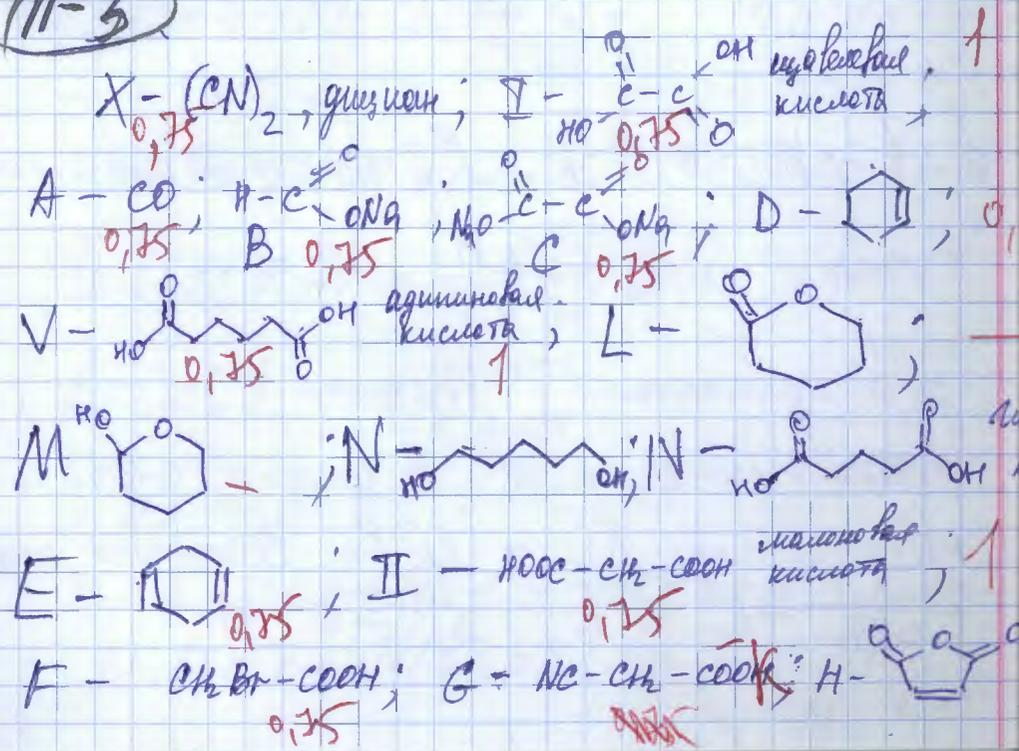 II-3
1
X – (CN)2, дициан; I – HO O C – C OH O щавелевая кислота,
0,75 0,75
A – CO; H – C O ONa; NaO O C – C O ONa; D – ;
0,75 B 0,75 C 0,75 0,
V – HO O O OH адипиновая кислота, L – O O ;
0,75 1
M HO O – ; N – HO OH; N – HO O O OH
E – ; II – HOOC – CH2 – COOH малоновая кислота, 1
0,75 0,75
F – CH2Br – COOH; G – NC – CH2 – COOK; H – O O O
0,75